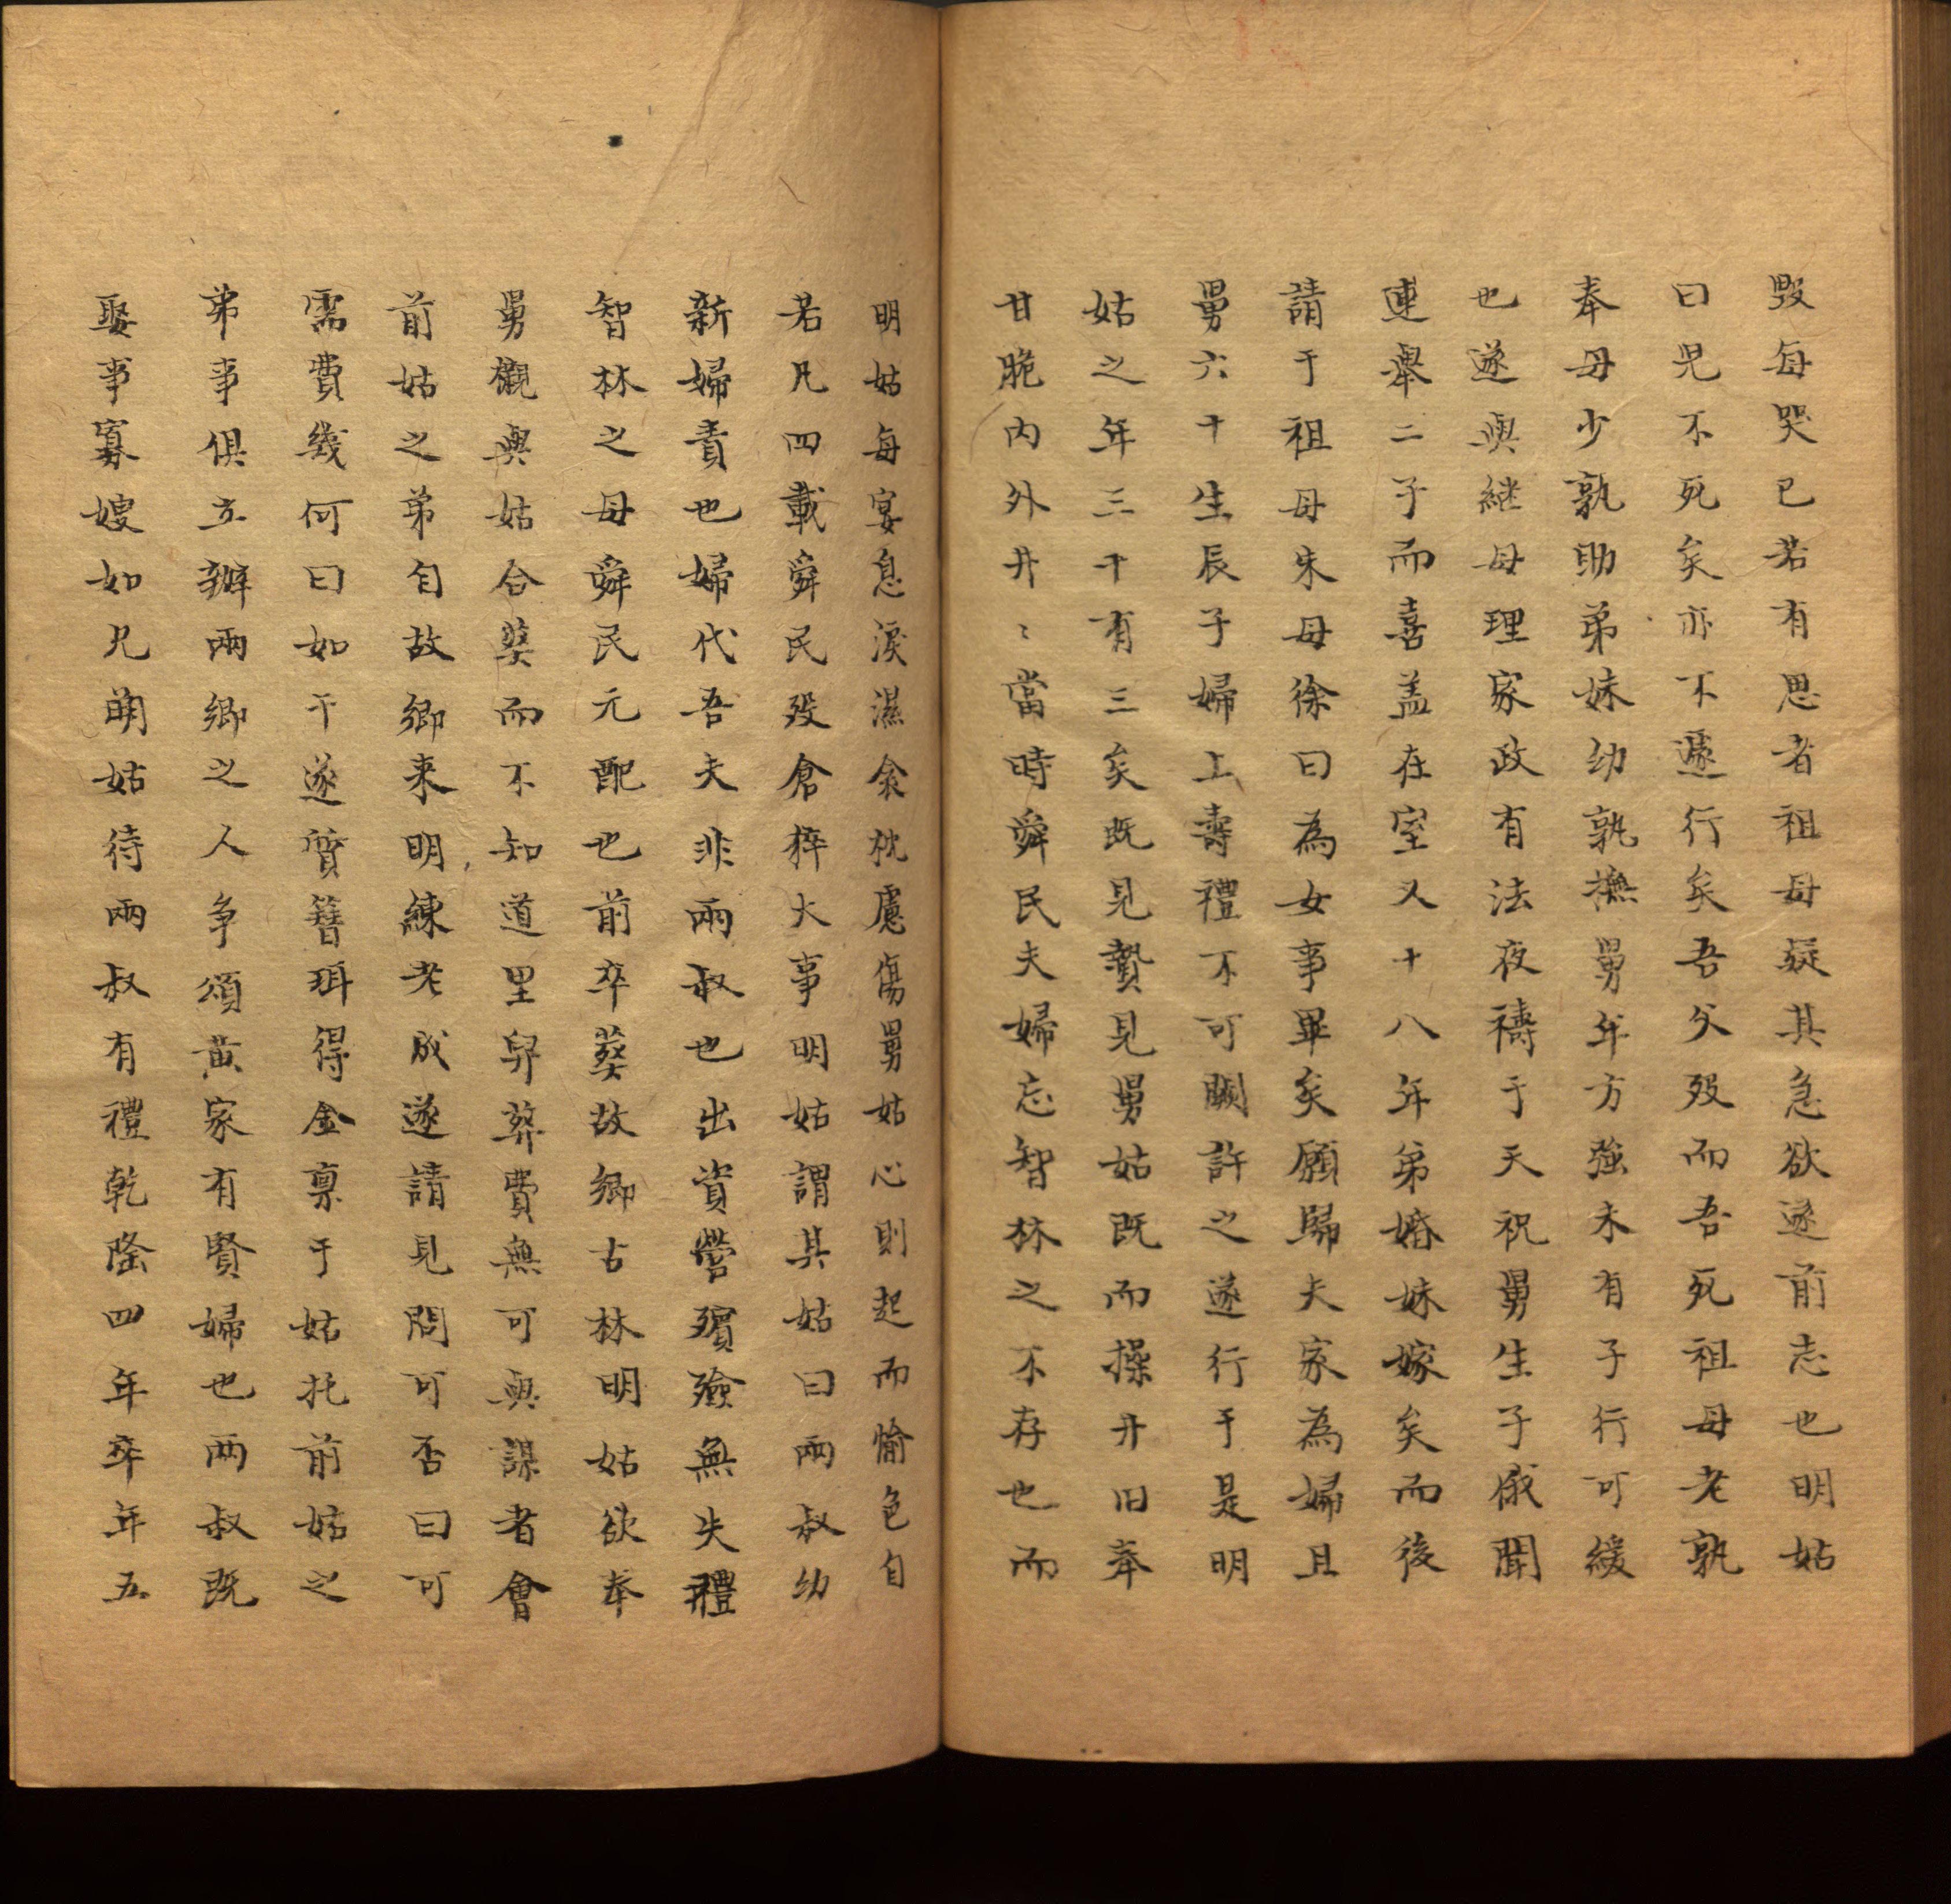 毀每哭已若有思者祖母疑其急欲遂前志也明姑
曰児不死矣亦不遽行矣吾父歿而吾死祖母老孰
奉母少孰助弟妹幼孰撫舅年方強未有子行可緩
也遂與継母理家政有法夜禱于天祝舅生子俄聞
連舉二子而喜盖在室又十八年弟婚妹嫁矣而後
請于祖母朱母徐曰為女事畢矣願歸夫家為婦且
舅六十生辰子婦上壽禮不可闕許之遂行于是明
姑之年三十有三矣既見贄見舅姑既而操井臼奉
甘脆内外井〻當時舜民夫婦忘智林之不存也而
明姑每宴息淚濕衾枕慮傷舅姑心則起而愉色自
若凡四載舜民歿倉猝大事明姑謂其姑曰兩叔幼
新婦責也婦代吾夫非兩叔也出資營殯殮無失禮
智林之母舜民元配也前卒葬故鄉古林明姑欲奉
舅櫬與姑合葬而不知道里舁葬費無可與謀者會
前姑之弟自故鄉来明練老成遂請見問可否曰可
需費幾何曰如干遂質簪珥得金禀于姑托前姑之
弟事俱立辦兩鄉之人争頌黄家有賢婦也两叔既
娶事寡嫂如兄萌姑待兩叔有禮乾隆四年卒年五